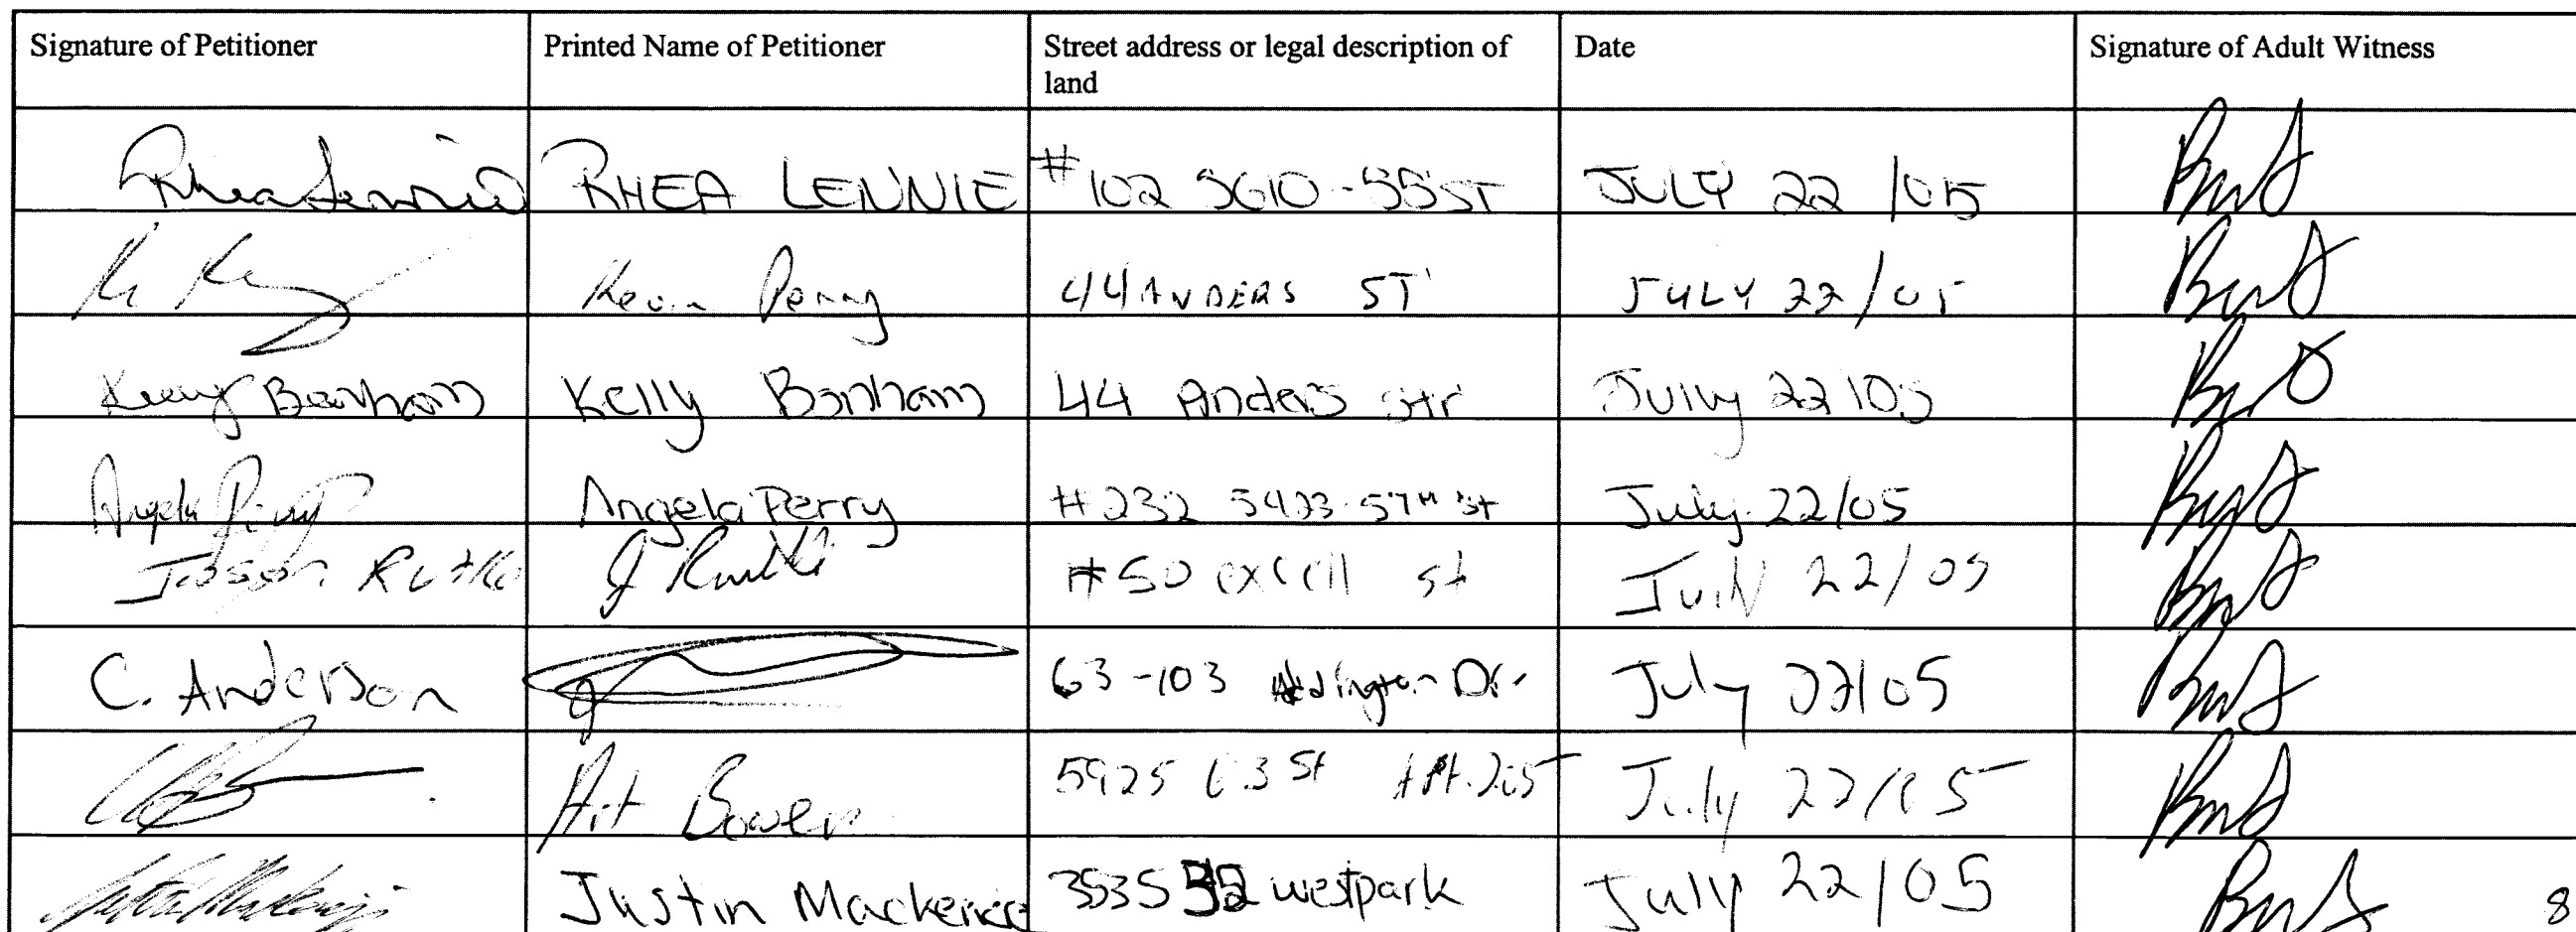 Signature of Petitioner Printed Name of Petitioner Street address or legal description of Date Signature of Adult Witness
land
Rhea Lennie RHEA LENNIE #102 5610-55ST JULY 22/05
Kevin Perry 44 ANDERS ST JULY 22/05
Kelly Bonham Kelly Bonham 44 Anders str July 22/05
Angela Perry Angela Perry #232 5423-57th St July 22/05
Jason #50 excell st July 22/05
C. Anderson 63-103 Addington Dr. July 22/05
Art Bower 5925 63 St Apt.205 July 22/05
Justin Mackenzie 3535 52 westpark July 22/05
8